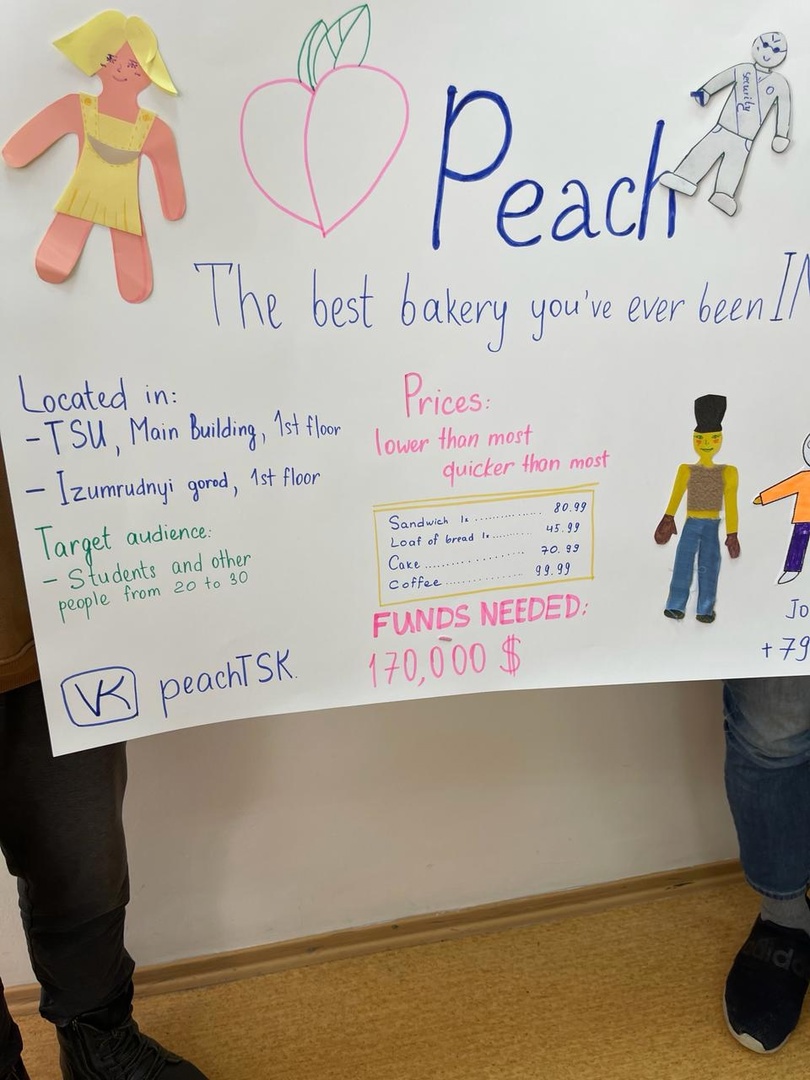 Peach
security
The best bakery you've ever been IN
Located in:
- TSU, Main Building, 1st floor
- Izumrudnyi gorod, 1st floor
Target audience:
- Students and other
people from 20 to 30
VK peachTSK.
Prices:
lower than most
quicker than most
Sandwich is .............. 80.99
Loaf of bread is........... 45.99
Cake .................... 70.99
Coffee ................ 99.99
FUNDS NEEDED:
170,000 $
Jo
+79
adidas